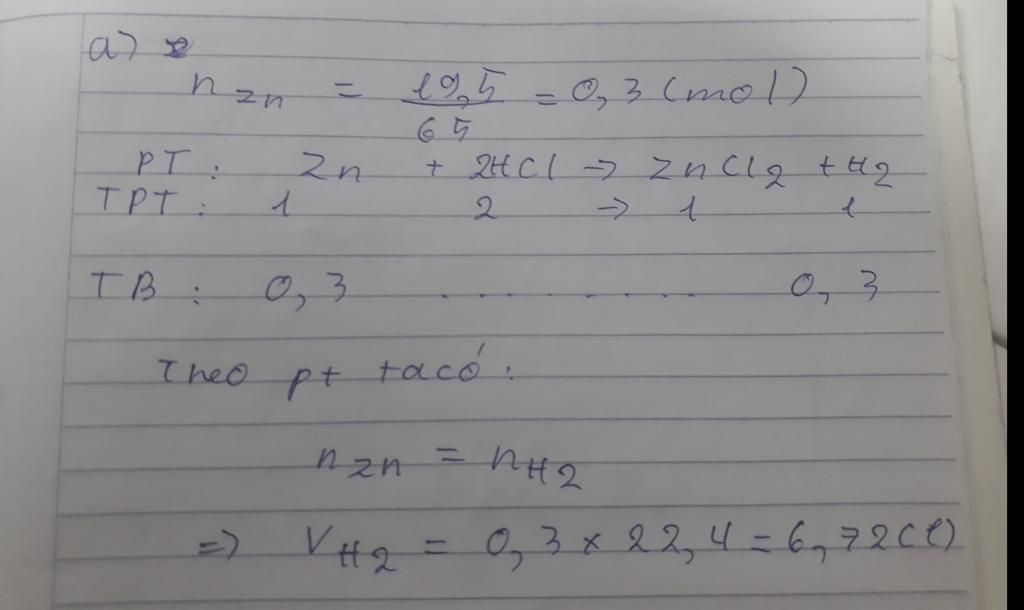 a)
n Zn = 19,5 / 65 = 0,3 (mol)
PT : Zn + 2HCl → ZnCl2 + H2
TPT : 1 2 → 1 1
TB : 0,3 .......... 0,3
Theo pt ta có :
n Zn = n H2
=> V H2 = 0,3 x 22,4 = 6,72 (l)